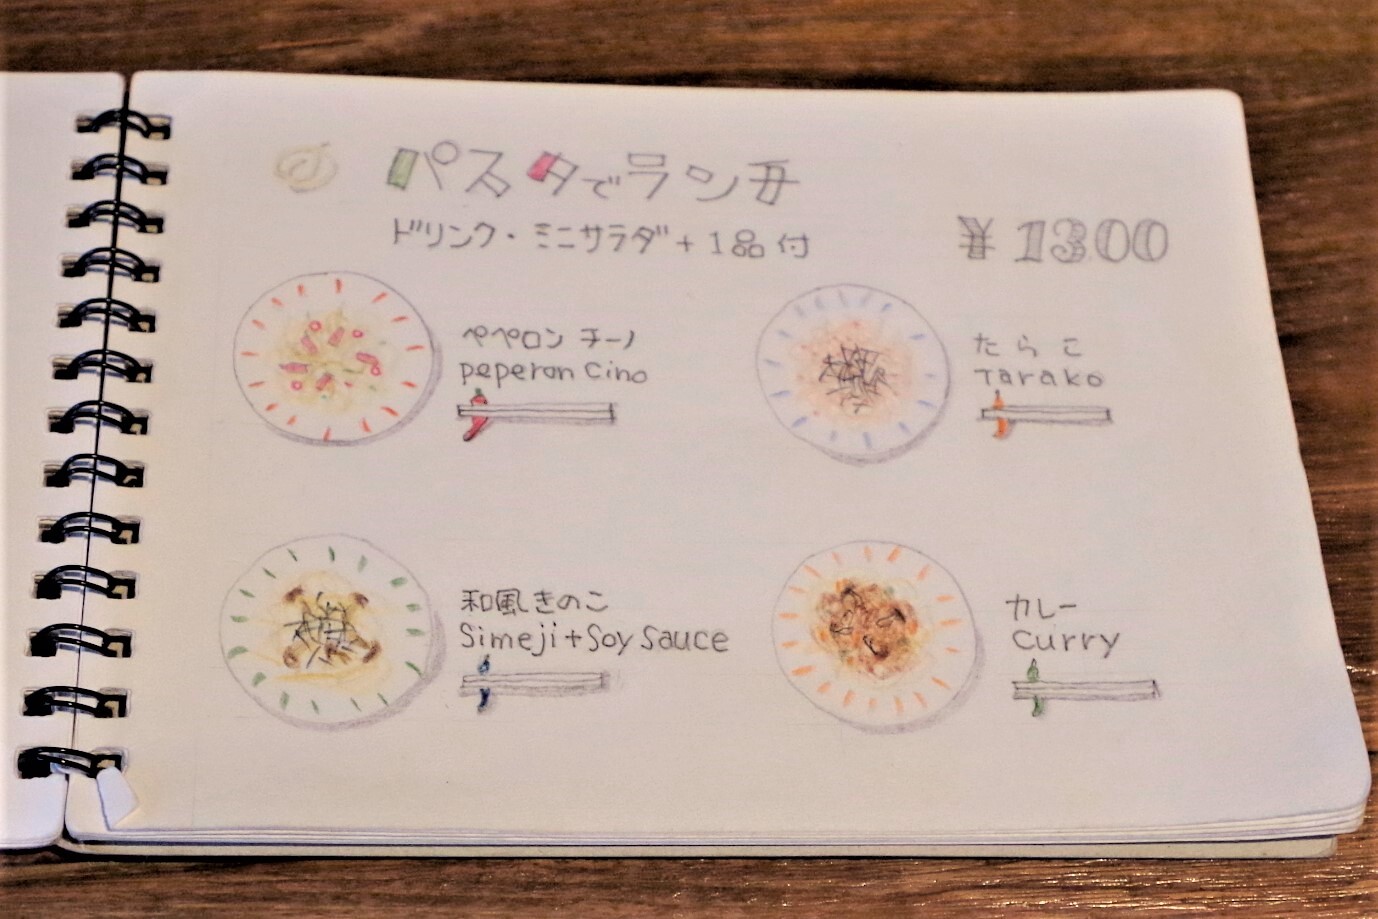 パスタでランチ
ドリンク・ミニサラダ+1品付
¥1300
ペペロンチーノ
peperon cino
たらこ
Tarako
和風きのこ
Simeji+Soy Sauce
カレー
Curry